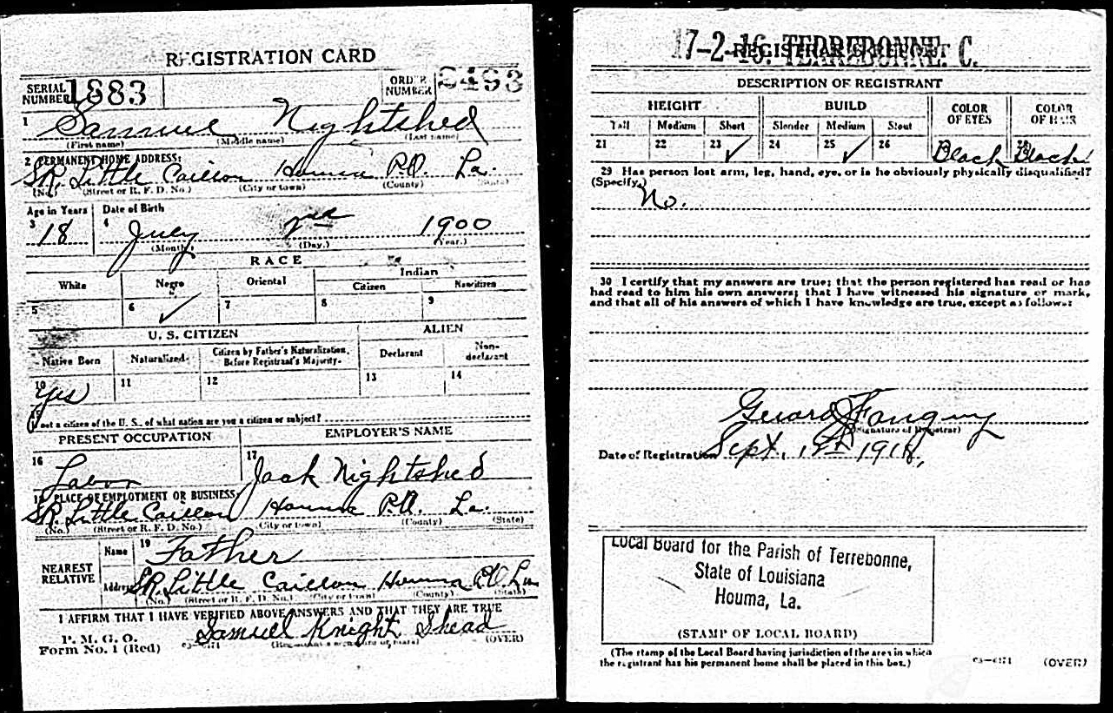 REGISTRATION CARD
SERIAL NUMBER 1883 ORDER NUMBER 3493
1 Samuel Nightshed
(First name) (Middle name) (Last name)
2 PERMANENT HOME ADDRESS:
SR. Little Caillou Houma P.O. La.
(No.) (Street or R. F. D. No.) (City or town) (County) (State)
Age in Years Date of Birth
3 18 4 July 2nd 1900
(Month.) (Day.) (Year.)
RACE
White Negro Oriental Indian
Citizen Noncitizen
5 6 ✓ 7 8 9
U. S. CITIZEN ALIEN
Native Born Naturalized. Citizen by Father's Naturalization, Before Registrant's Majority. Declarant Non-declarant
10 yes 11 12 13 14
15 If not a citizen of the U. S., of what nation are you a citizen or subject?
PRESENT OCCUPATION EMPLOYER'S NAME
16 Labor 17 Jack Nightshed
18 PLACE OF EMPLOYMENT OR BUSINESS:
SR. Little Caillou Houma P.O. La.
(No.) (Street or R. F. D. No.) (City or town) (County) (State)
NEAREST RELATIVE Name 19 Father
Address SR. Little Caillou Houma P.O. La
(No.) (Street or R. F. D. No.) (City or town) (County) (State)
I AFFIRM THAT I HAVE VERIFIED ABOVE ANSWERS AND THAT THEY ARE TRUE
P. M. G. O.
Form No. 1 (Red) Samuel Knight Shead (OVER)
(Registrant's signature or mark)
17-2-16. TERREBONNE. C.
REGISTRAR'S REPORT
DESCRIPTION OF REGISTRANT
HEIGHT BUILD COLOR OF EYES COLOR OF HAIR
Tall Medium Short Slender Medium Stout
21 22 23 ✓ 24 25 ✓ 26 27 Black 28 Black
29 Has person lost arm, leg, hand, eye, or is he obviously physically disqualified?
(Specify.) No.
30 I certify that my answers are true; that the person registered has read or has
had read to him his own answers; that I have witnessed his signature or mark,
and that all of his answers of which I have knowledge are true, except as follows:
(Signature of Registrar)
Date of Registration Sept. 1918.
Local Board for the Parish of Terrebonne,
State of Louisiana
Houma, La.
(STAMP OF LOCAL BOARD)
(The stamp of the Local Board having jurisdiction of the area in which
the registrant has his permanent home shall be placed in this box.)
(OVER)